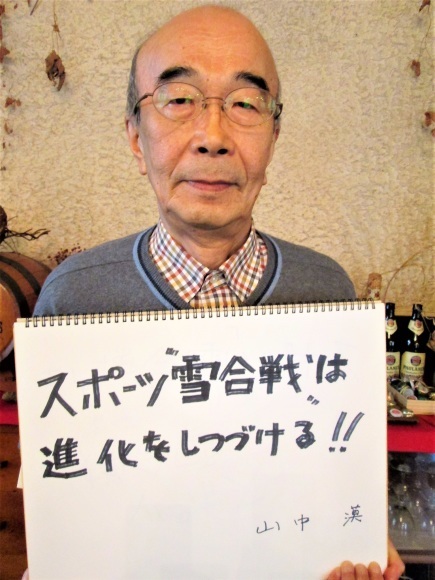 スポーツ〝雪合戦〟は
進化をしつづける!!
山中 漠
PAULANER